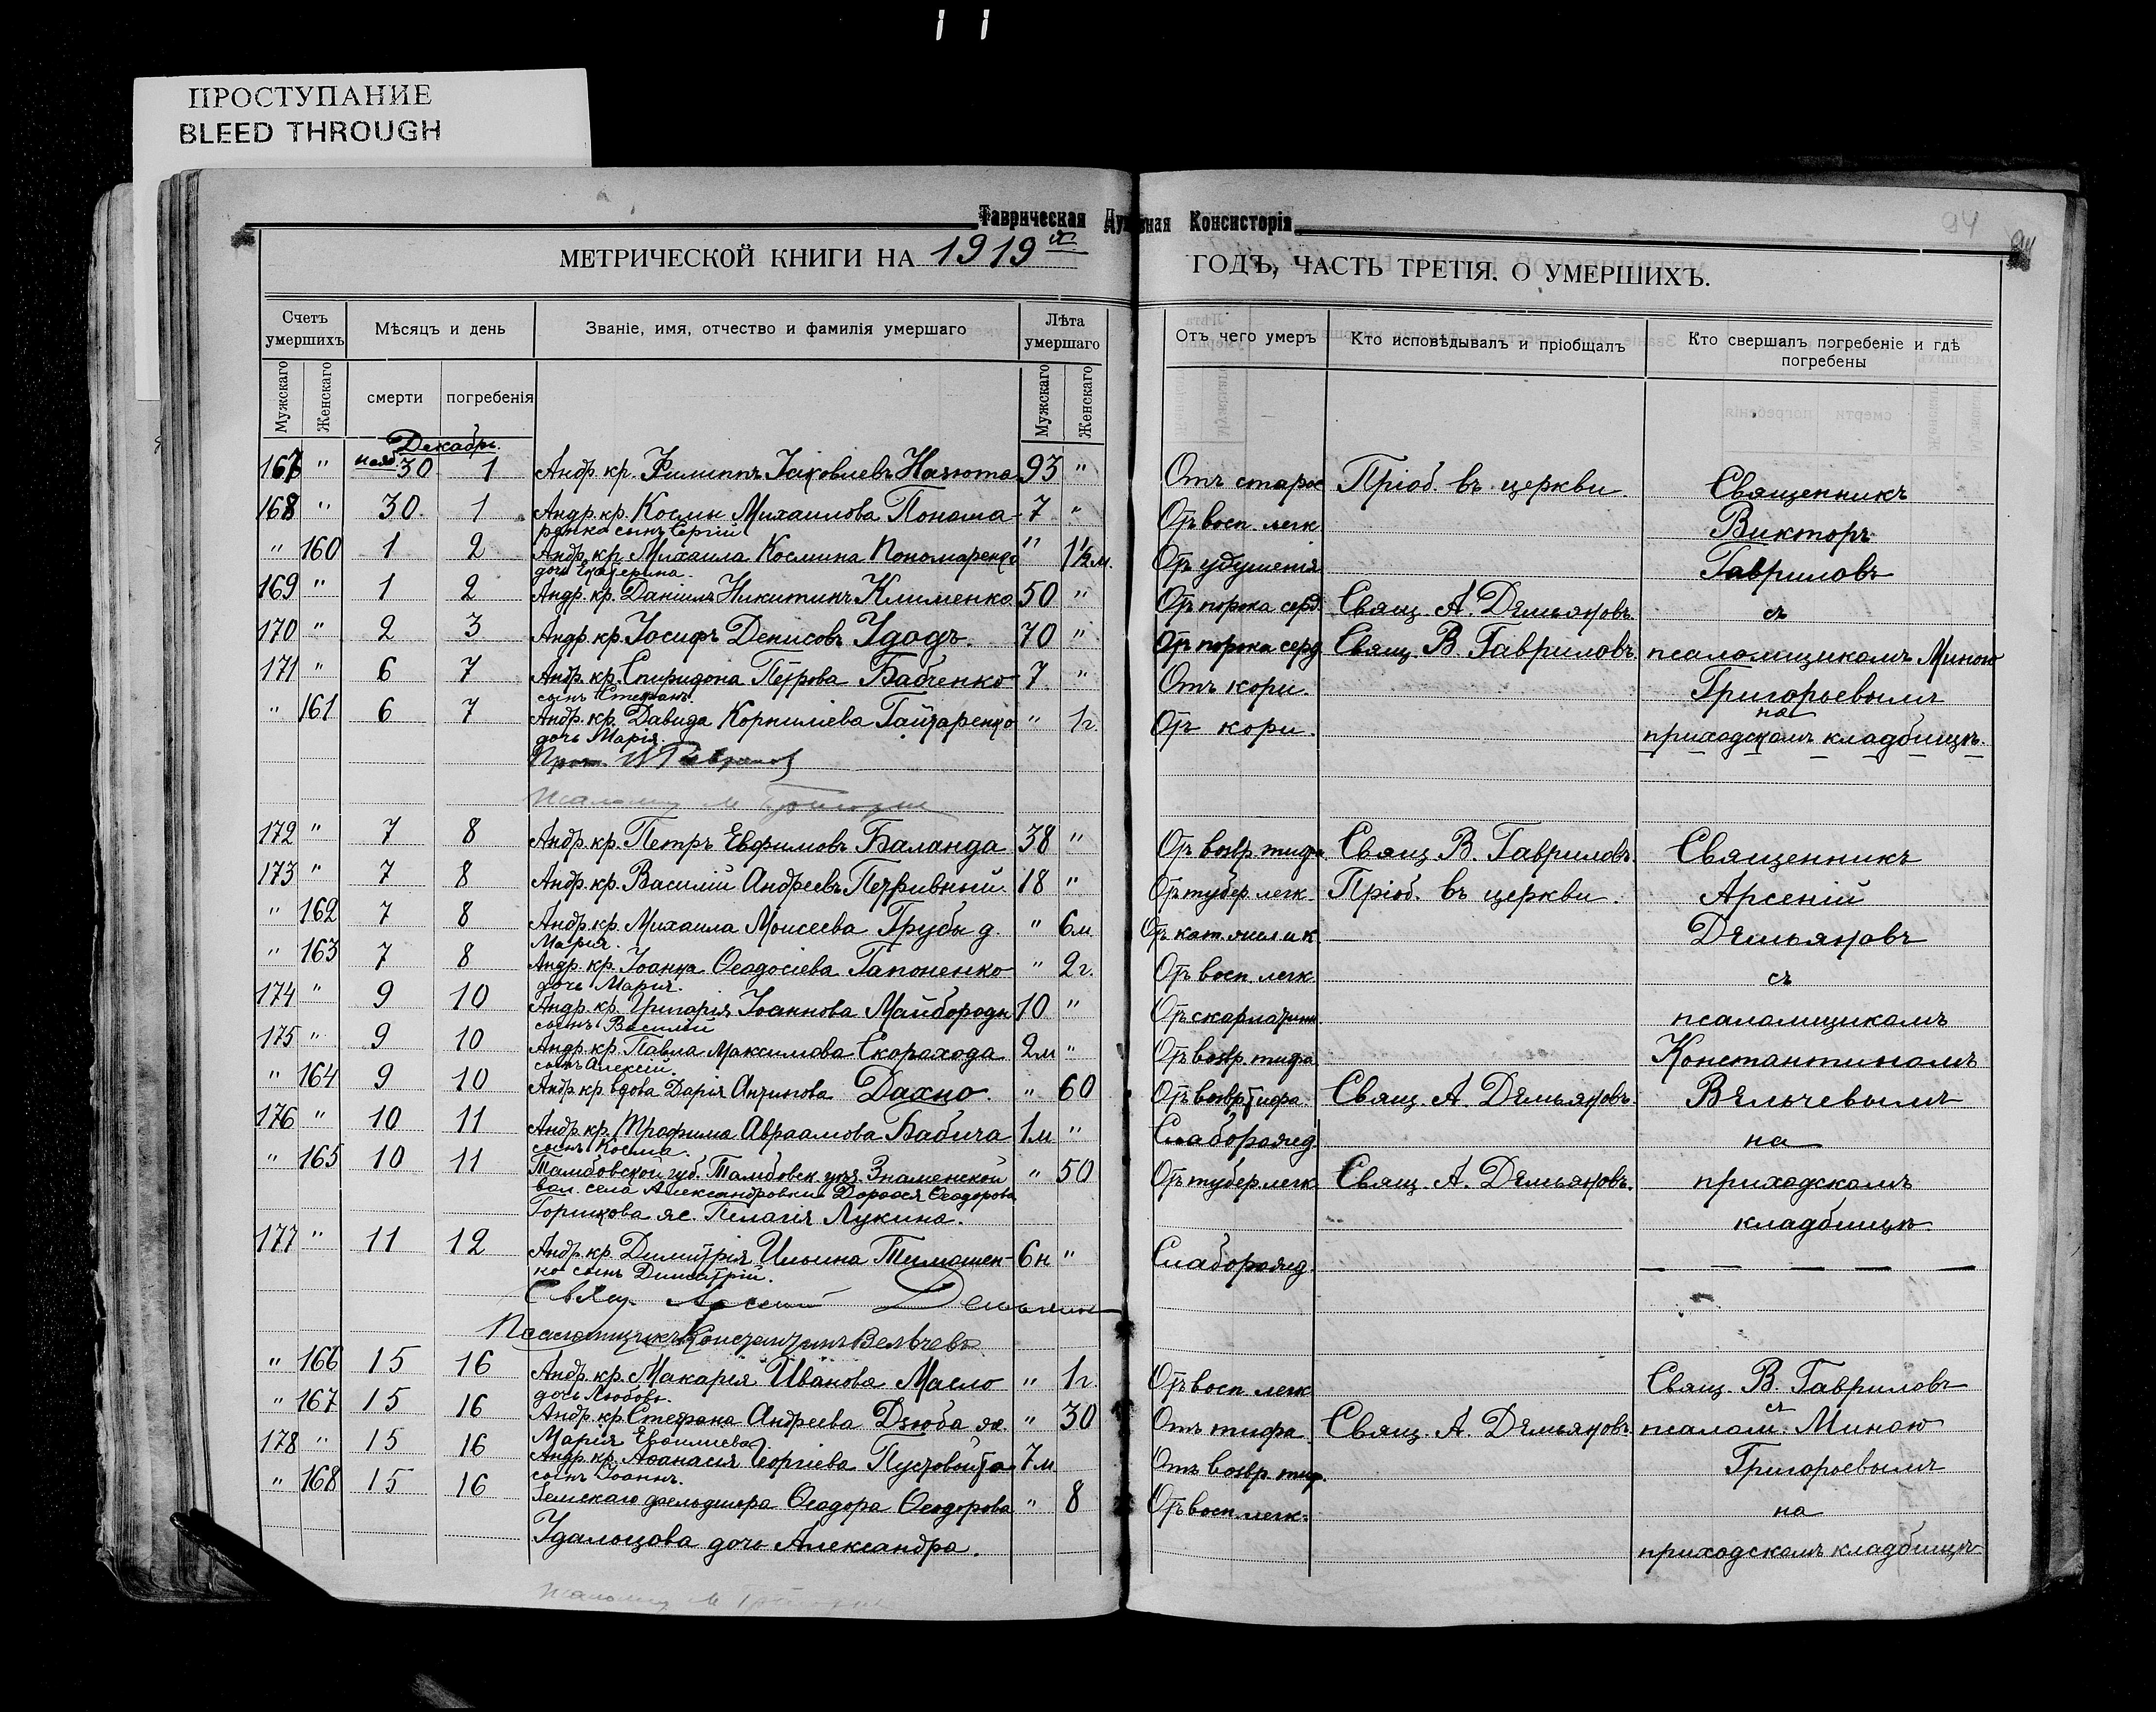 ПРОСТУПАНИЕ
BLEED THROUGH
94
Таврическая Духовная Консисторія
МЕТРИЧЕСКОЙ КНИГИ НА 1919 й ГОДЪ, ЧАСТЬ ТРЕТІЯ. О УМЕРШИХЪ.
Счетъ умершихъ
Мѣсяцъ и день
Званіе, имя, отчество и фамилія умершаго
Лѣта умершаго
Отъ чего умеръ
Кто исповѣдывалъ и пріобщалъ
Кто свершалъ погребеніе и гдѣ погребены
Мужскаго Женскаго смерти погребенія Мужскаго Женскаго
Декабрь.
167 " нояб. 30 1 Андр. кр. Филиппъ Іаковлевъ Назюта 93 " Отъ старос Пріоб. въ церкви. Священникъ
168 " 30 1 Андр. кр. Космы Михаилова Понома- 7 " От восп. легк Викторъ
ренко сынъ Сергій
" 160 1 2 Андр. кр. Михаила Космина Пономаренко " 1½ м. От удушенія Гавриловъ
дочь Екатерина.
169 " 1 2 Андр. кр. Даніилъ Никитинъ Клименко 50 " От порока серд. Свящ. А. Демьяновъ. съ
170 " 2 3 Андр. кр. Іосифъ Денисовъ Удодъ. 70 " От порока серд. Свящ. В. Гавриловъ. псаломщикомъ Миною
171 " 6 7 Андр. кр. Спиридона Петрова Бабченко 7 " Отъ кори. Григорьевымъ
сынъ Стефанъ.
на
" 161 6 7 Андр. кр. Давида Корниліева Гайтаренко " 1 г. От кори. приходскомъ кладбищѣ.
дочь Марія.
Прот. В Гаврилов
Псаломщ М Григорьев
172 " 7 8 Андр. кр. Петръ Евфимовъ Баланда 38 " От возвр. тифа Свящ В. Гавриловъ. Священникъ
173 " 7 8 Андр. кр. Василій Андреевъ Петривный. 18 " От тубер. легк. Пріоб. въ церкви. Арсеній
" 162 7 8 Андр. кр. Михаила Моисеева Грубы д. " 6 м. Демьяновъ
Марія.
" 163 7 8 Андр. кр. Іоанна Ѳеодосіева Гапоненко " 2 г. От восп. легк съ
дочь Марія.
174 " 9 10 Андр. кр. Григорія Іоаннова Майбороды 10 " От скарлатин. псаломщикомъ
сынъ Василій
175 " 9 10 Андр. кр. Павла Максимова Скорахода 2 м " От возвр. тифа Константиномъ
сынъ Алексій.
" 164 9 10 Андр. кр. вдова Дарія Антипова Дахно. " 60 От возвр. тифа. Свящ. А. Демьяновъ. Вельчевымъ
176 " 10 11 Андр. кр. Трофима Авраамова Бабича 1 м " Слаборожд на
сынъ Косма.
" 165 10 11 Тамбовской губ. Тамбовск. уѣз. Знаменской " 50 От тубер. легк Свящ. А. Демьяновъ. приходскомъ
вол. села Александровки Дороѳея Ѳеодорова
Горшкова ж. Пелагія Лукина. кладбищѣ.
177 " 11 12 Андр. кр. Димитрія Ильина Тимошен- 6 н " Слаборожд.
ко сынъ Димитрій.
Свящ. Арсений Демьянов
Псаломщикъ Константинъ Вельчевъ
" 166 15 16 Андр. кр. Макарія Иванова Масло " 1 г. От восп. легк Свящ. В. Гавриловъ
дочь Любовь.
съ
" 167 15 16 Андр. кр. Стефана Андреева Дзюба ж. " 30 Отъ тифа Свящ. А. Демьяновъ. псалом. Миною
Марія
178 " 15 16 Андр. кр. Аѳанасія Георгіева Пустовойта 7 м Отъ возвр. тиф. Григорьевымъ
сынъ Іоаннъ.
" 168 15 16 Земскаго фельдшера Ѳеодора Ѳеодорова " 8 От восп. легк. на
Удальцова дочь Александра. приходскомъ кладбищѣ
Псаломщ М Григорьев